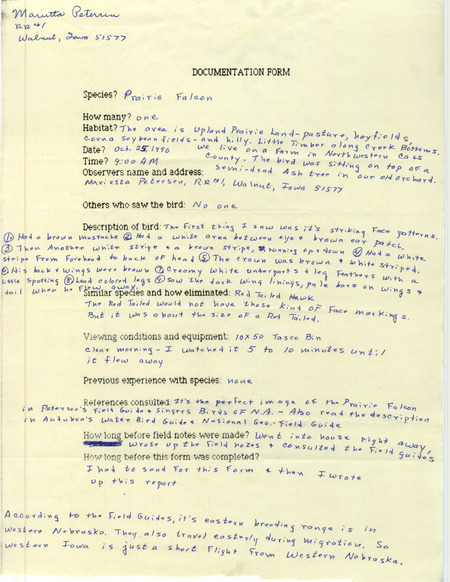 Marietta Petersen
RR#1
Walnut, Iowa 51577
DOCUMENTATION FORM
Species? Prairie Falcon
How many? one
Habitat? The area is Upland Prairie Land-pasture, hayfields,
corn & soybean fields-and hilly. Little Timber along Creek Bottoms.
Date? Oct. 25, 1990 We live on a farm in Northwestern Cass
Time? 9:00 AM County. The bird was sitting on top of a
Observers name and address: semi-dead Ash tree in our old orchard.
Marietta Petersen, RR#1, Walnut, Iowa 51577
Others who saw the bird: No one
Description of bird: The First thing I saw was it's striking Face patterns.
① Had a brown mustache ② Had a white area between eye & brown ear patch.
③ Then Another white stripe & a brown stripe, running up & down ④ Had a white
stripe From Forehead to back of head ⑤ The crown was brown & white striped.
⑥ His back & wings were brown ⑦ Creamy White underparts & leg Feathers with a
little spotting ⑧ lead colored legs ⑨ Saw the dark wing linings, pale bars on wings &
tail when he flew away.
Similar species and how eliminated: Red Tailed Hawk
The Red Tailed would not have those kind of Face markings.
But it was about the size of a Red Tailed.
Viewing conditions and equipment: 10x50 Tasco Bin
clear morning - I watched it 5 to 10 minutes until
it flew away
Previous experience with species: none
References consulted: It's the perfect image of the Prairie Falcon
in Peterson's Field Guide & Singers Birds of N.A. - Also read the description
in Audubon's Water Bird Guide & National Geo. Field Guide
How long before field notes were made? Went into house right away,
wrote up the Field notes & consulted the Field guides
How long before this form was completed?
I had to send For this Form & then I wrote
up this report
According to the Field Guides, it's eastern breeding range is in
Western Nebraska. They also travel easterly during migration. So
western Iowa is just a short Flight From Western Nebraska.